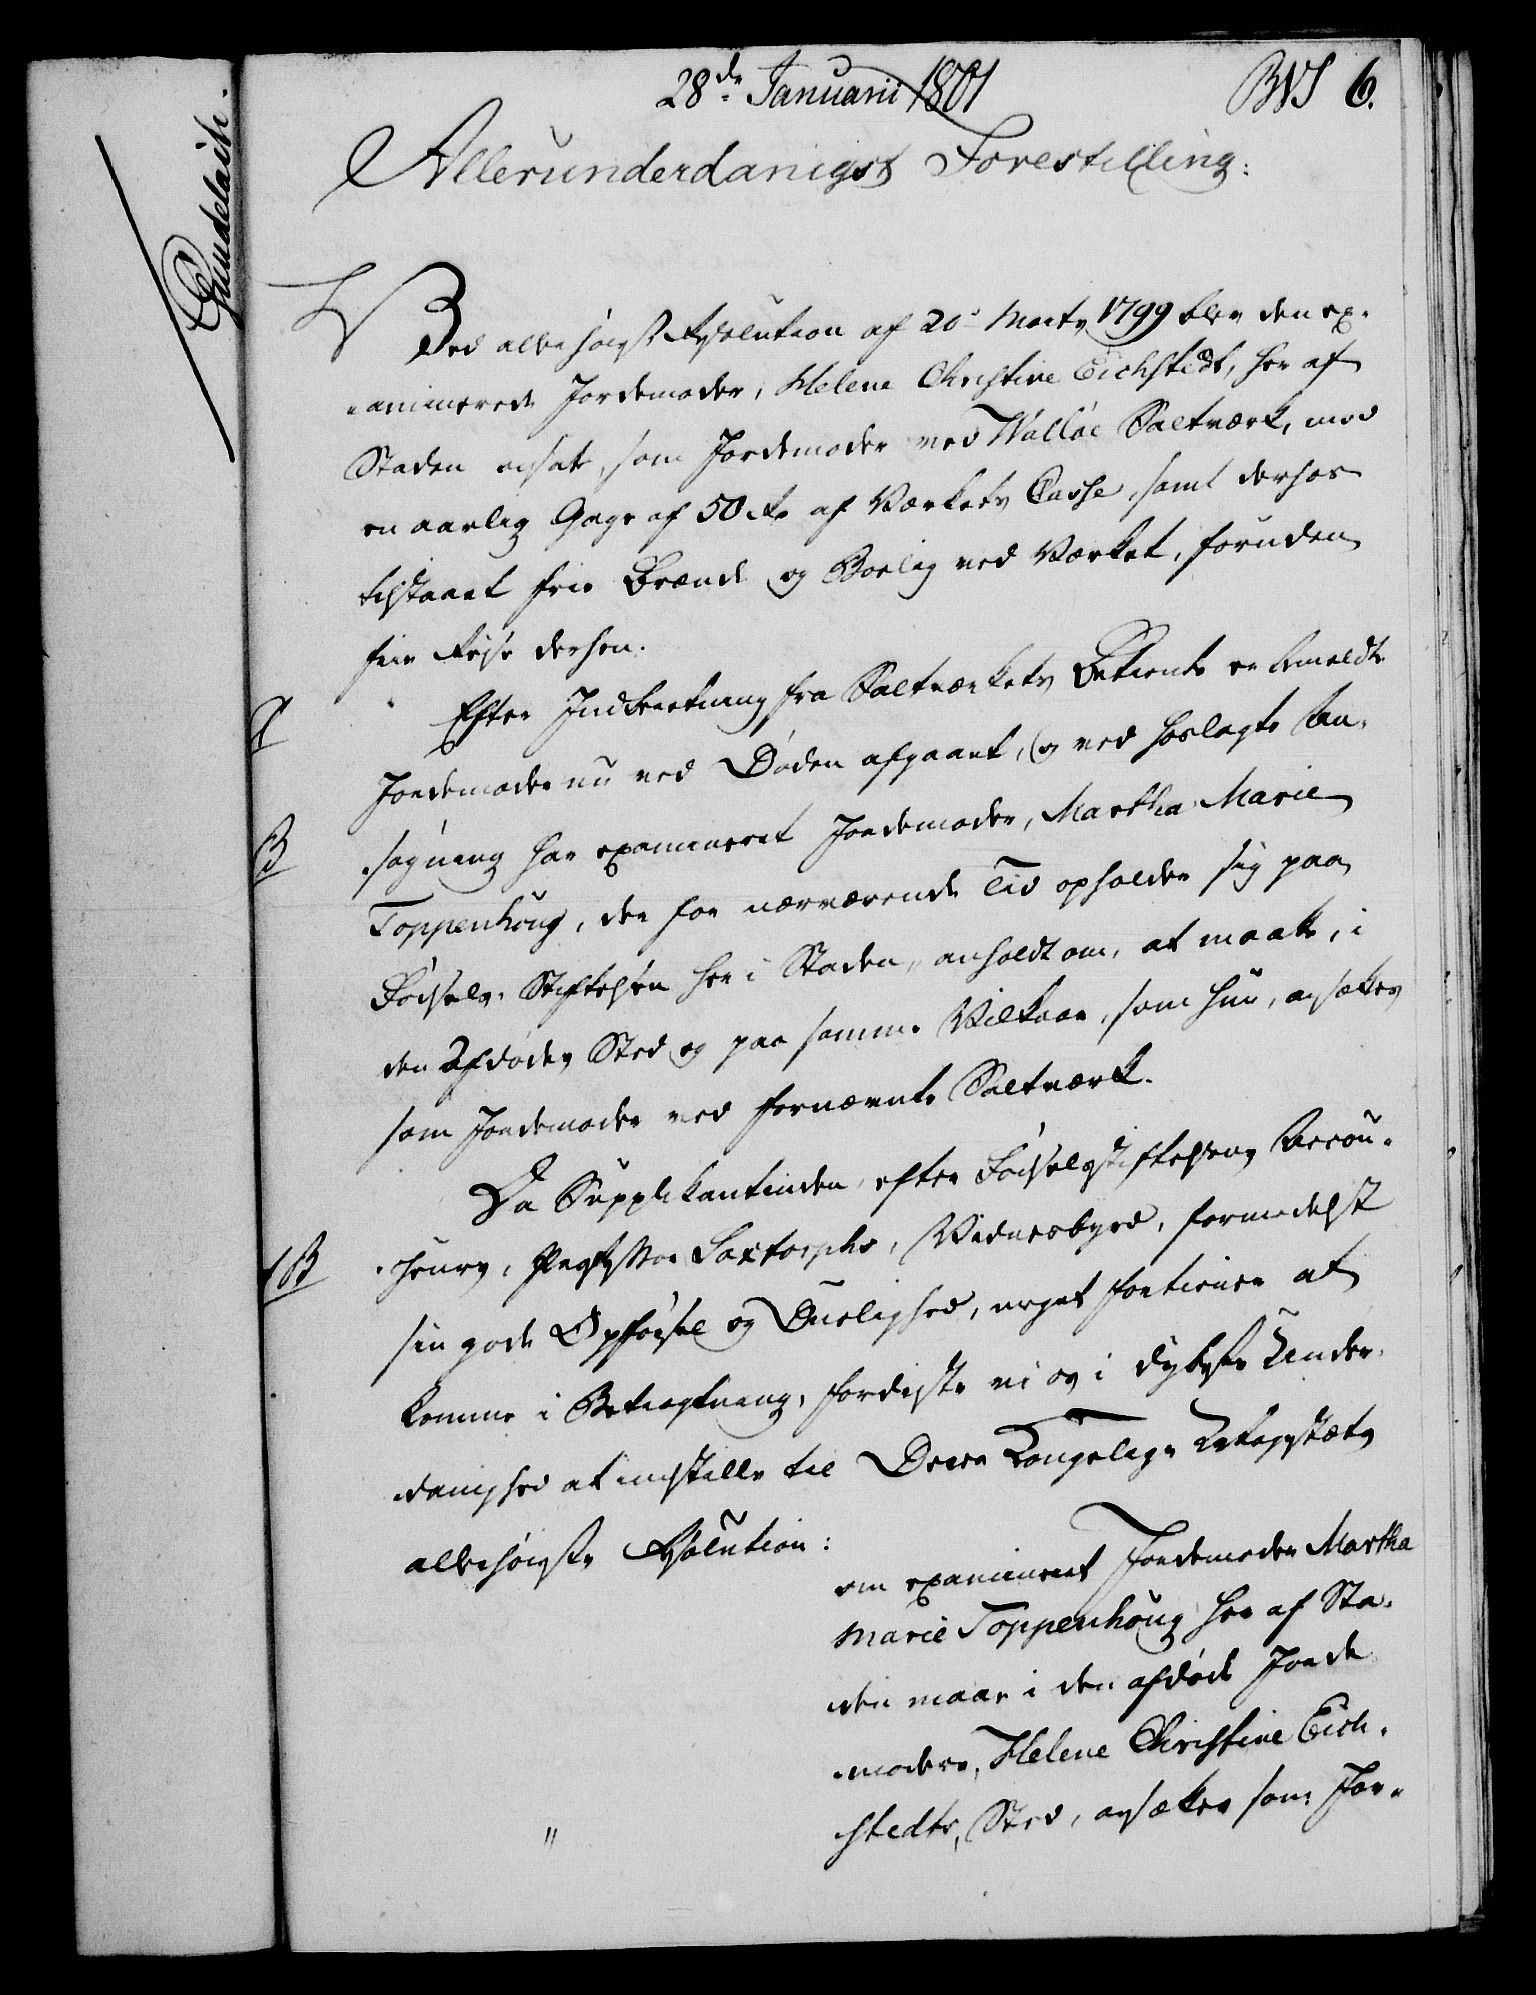 28de Januarii 1801
BNS 6.
Allerunderdanigst Forestilling:
Gundelach.
Ved allerhøiest Resolution af 20de Marty 1799 blev den ex-
aminerede Jordemoder, Helene Christine Eichstedt, her af
Staden ansat, som Jordemoder ved Walløe Saltværk, med
en aarlig Gage af 50 rdr af Værkets Casse, samt derhos
tilstaaet frie Brænde og Boelig ved Værket, foruden
frie Rejse derhen.
A
Efter Indberetning fra Saltværkets Betiente er bemeldte
Jordemoder nu ved Døden afgaaet, og ved hoslagte An-
B
søgning har examineret Jordemoder, Martha Marie
Toppenhoug, der for nærværende Tid opholder sig paa
Fødsels-Stiftelsen her i Staden, anholdt om, at maatte, i
den Afdødes Sted og paa samme Vilkaar, som hun, ansættes
som Jordemoder ved fornævnte Saltværk.
Da Supplikantinden, efter Fødselsstiftelsens Accou-
/B
cheurs, Professor Saxtorphs, Vidnesbyrd, formedelst
sin gode Opførsel og Duelighed, meget fortiener at
komme i Betragtning, fordriste vi os i dybeste Under-
danighed at indstille til Deres Kongelige Majestæts
allerhøieste Resolution:
om examineret Jordemoder Martha
Marie Toppenhoug her af Sta-
den maae i den afdøde Jorde-
moders, Helene Christine Eich-
stedts, Sted, ansættes som Jor-
"